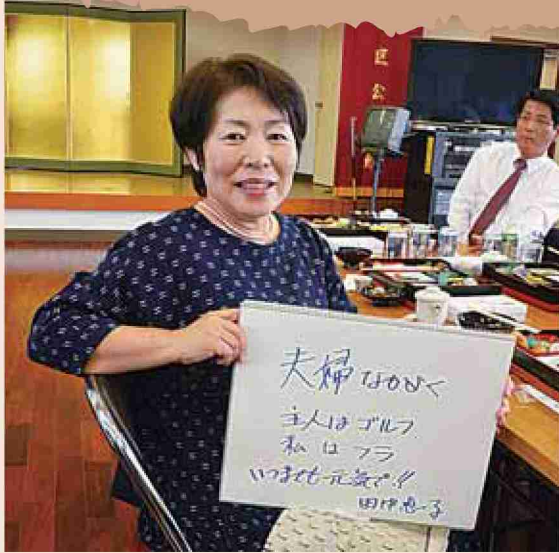 夫婦なかよく
主人はゴルフ
私はフラ
いつまでも元気で!!
田中恵子
区